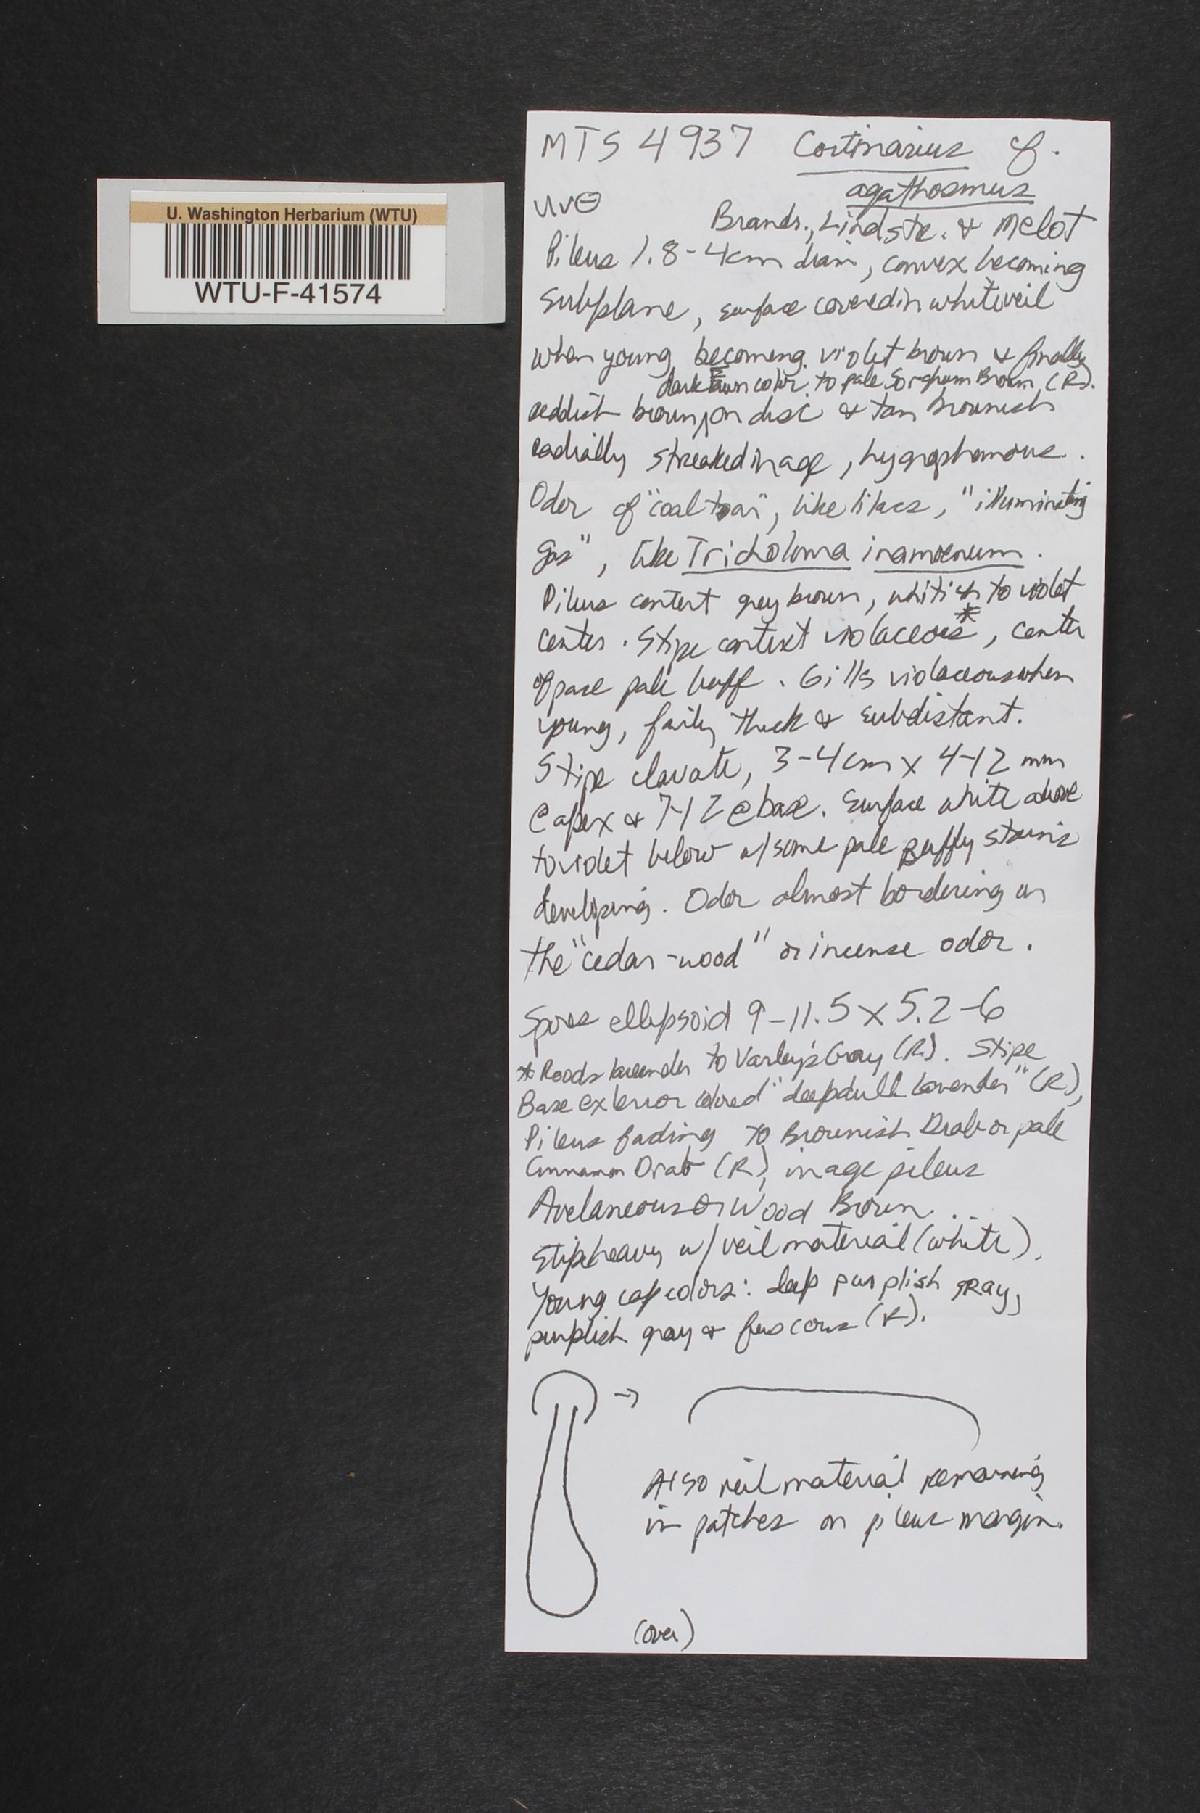 U. Washington Herbarium (WTU)
WTU-F-41574
MTS 4937 Cortinarius cf.
agathosmus
UV⊖
Brandr., Lindstr. & Melot
Pileus 1.8-4cm diam, convex becoming
subplane, surface covered in white veil
when young becoming violet brown & finally
dark color to pale Sorghum Brown (R).
reddish brown on disc & tan brownish
radially streaked in age, hygrophanous.
Odor of "coal tar", like lilacs, "illuminating
gas", like Tricholoma inamoenum.
Pileus context grey brown, whitish to violet
center. Stipe context violaceous*, center
of base pale buff. Gills violaceous when
young, fairly thick & subdistant.
Stipe clavate, 3-4cm x 4-12 mm
@ apex & 7-12 @ base. Surface white above
to violet below w/some pale buffy stains
developing. Odor almost bordering on
the "cedar-wood" or incense odor.
Spores ellipsoid 9-11.5 x 5.2-6
* Roods lavender to Varley's Gray (R). Stipe
Base exterior colored "deep dull lavender" (R),
Pileus fading to Brownish Drab or pale
Cinnamon Drab (R), in age pileus
Avelaneous or Wood Brown.
Stipe heavy w/ veil material (white).
Young cap colors: deep purplish gray,
purplish gray & fuscous (R).
→
Also veil material remaining
in patches on pileus margin.
(over)